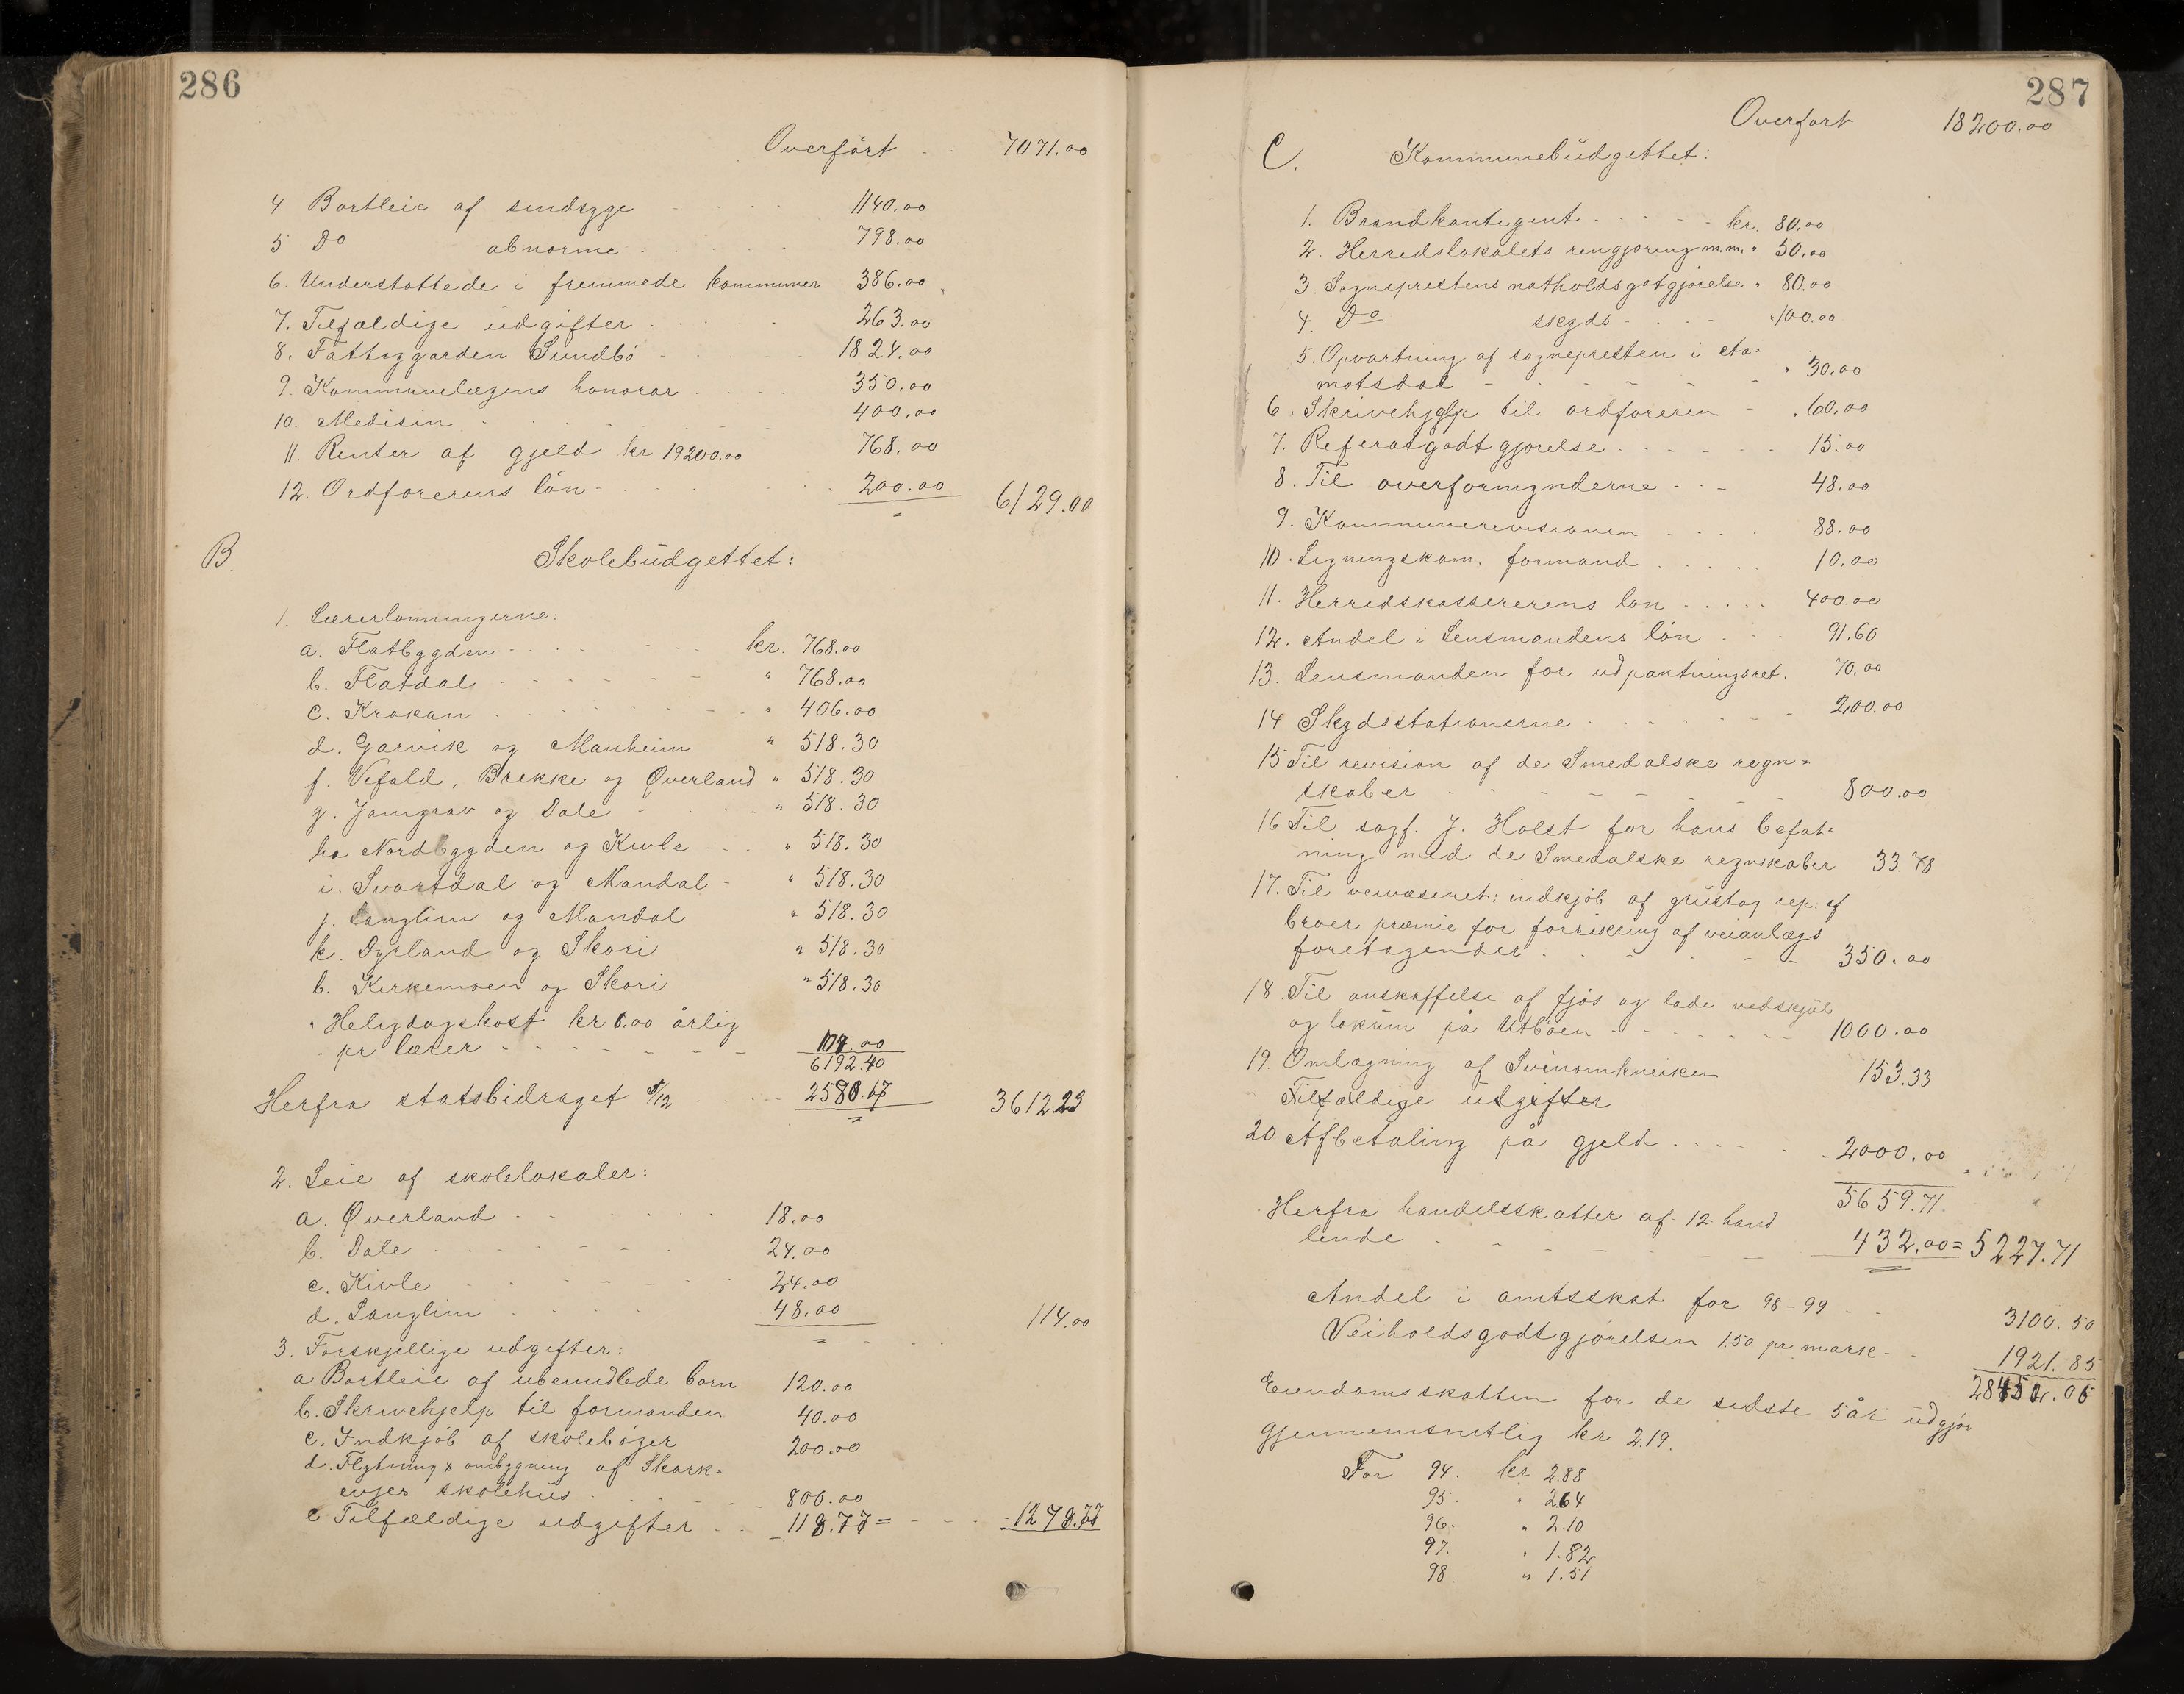 286
Overført 7071.00
4 Bortleie af sindsyge 1140.00
5 Do abnorme 798.00
6. Understøttede i fremmede kommuner 386.00
7. Tilfældige udgifter 263.00
8. Fattiggarden Sundbö 1824.00
9. Kommunelægens honorar 350.00
10. Medisin 400.00
11. Renter af gjeld kr 19200.00 768.00
12. Ordførerens løn 200.00 6129.00
B. Skolebudgettet:
1. Lærerlønningerne:
a. Flatbygden kr. 768.00
b. Flatdal " 768.00
c. Krokan " 406.00
d. Garvik og Manheim " 518.30
f. Vefald, Brekke og Øverland " 518.30
g. Jamgrav og Dale " 518.30
h. Nordbygden og Kivle " 518.30
i. Svartdal og Mandal " 518.30
j. Langlim og Mandal " 518.30
k. Dyrland og Skori " 518.30
l. Kirkemoen og Skori " 518.30
" Heligdagskost kr 8.00 årlig
pr lærer 104.00
6192.40
Herfra statsbidraget 5/12 2580.17 3612.23
2. Leie af skolelokaler:
a. Øverland 18.00
b. Dale 24.00
c. Kivle 24.00
d. Langlim 48.00 114.00
3. Forskjellige udgifter:
a Bortleie af ubemidlede børn 120.00
b. Skrivehjelp til formanden 40.00
c. Indkjøb af skolebøger 200.00
d. Flytning & ombygning af Skork-
enjes skolehus 800.00
e Tilfældige udgifter 118.77 = 1278.77
287
Overført 18200.00
C. Kommunebudgettet:
1. Brandkontigent kr. 80.00
2. Herredslokalets rengjøring m.m. " 50.00
3. Sogneprestens natholdsgotgjørelse " 80.00
4. Do skyds " 100.00
5. Opvartning af sognepresten i Aa-
motsdal " 30.00
6. Skrivehjelp til ordføreren " 60.00
7. Referatgodtgjørelse 15.00
8. Til overformynderne 48.00
9. Kommunerevisionen 88.00
10. Ligningskom. formand 10.00
11. Herredskassererens løn 400.00
12. Andel i Lensmandens løn 91.60
13. Lensmanden for udpantningsret. 70.00
14 Skydsstationerne 200.00
15 Til revision af de Smedalske regn-
skaber 800.00
16 Til sagf. J. Holst for hans befat-
ning med de Smedalske regnskaber 33.78
17. Til veivæsenet: indkjøb af grustag rep. af
broer præmie for forsikring af veianlægs
foretagender 350.00
18. Til anskaffelse af fjøs og lade vedskjul
og lokum på Utbøen 1000.00
19. Omlægning af Svinomkneiken 153.33
Tilfældige udgifter
20 Afbetaling på gjeld 2000.00
5659.71.
Herfra handelsskatter af 12 hand
lende 432.00 = 5227.71
Andel i amtsskat for 98-99 3100.50
Veiholdsgodtgjørelsen 1.50 pr mark 1921.85
28452.06
Eiendomsskatten for de sidste 5 år udgjør
gjennemsnitlig kr 2.19.
For 94. kr 2.88
95. " 2.64
96. " 2.10
97. " 1.82
98. " 1.51